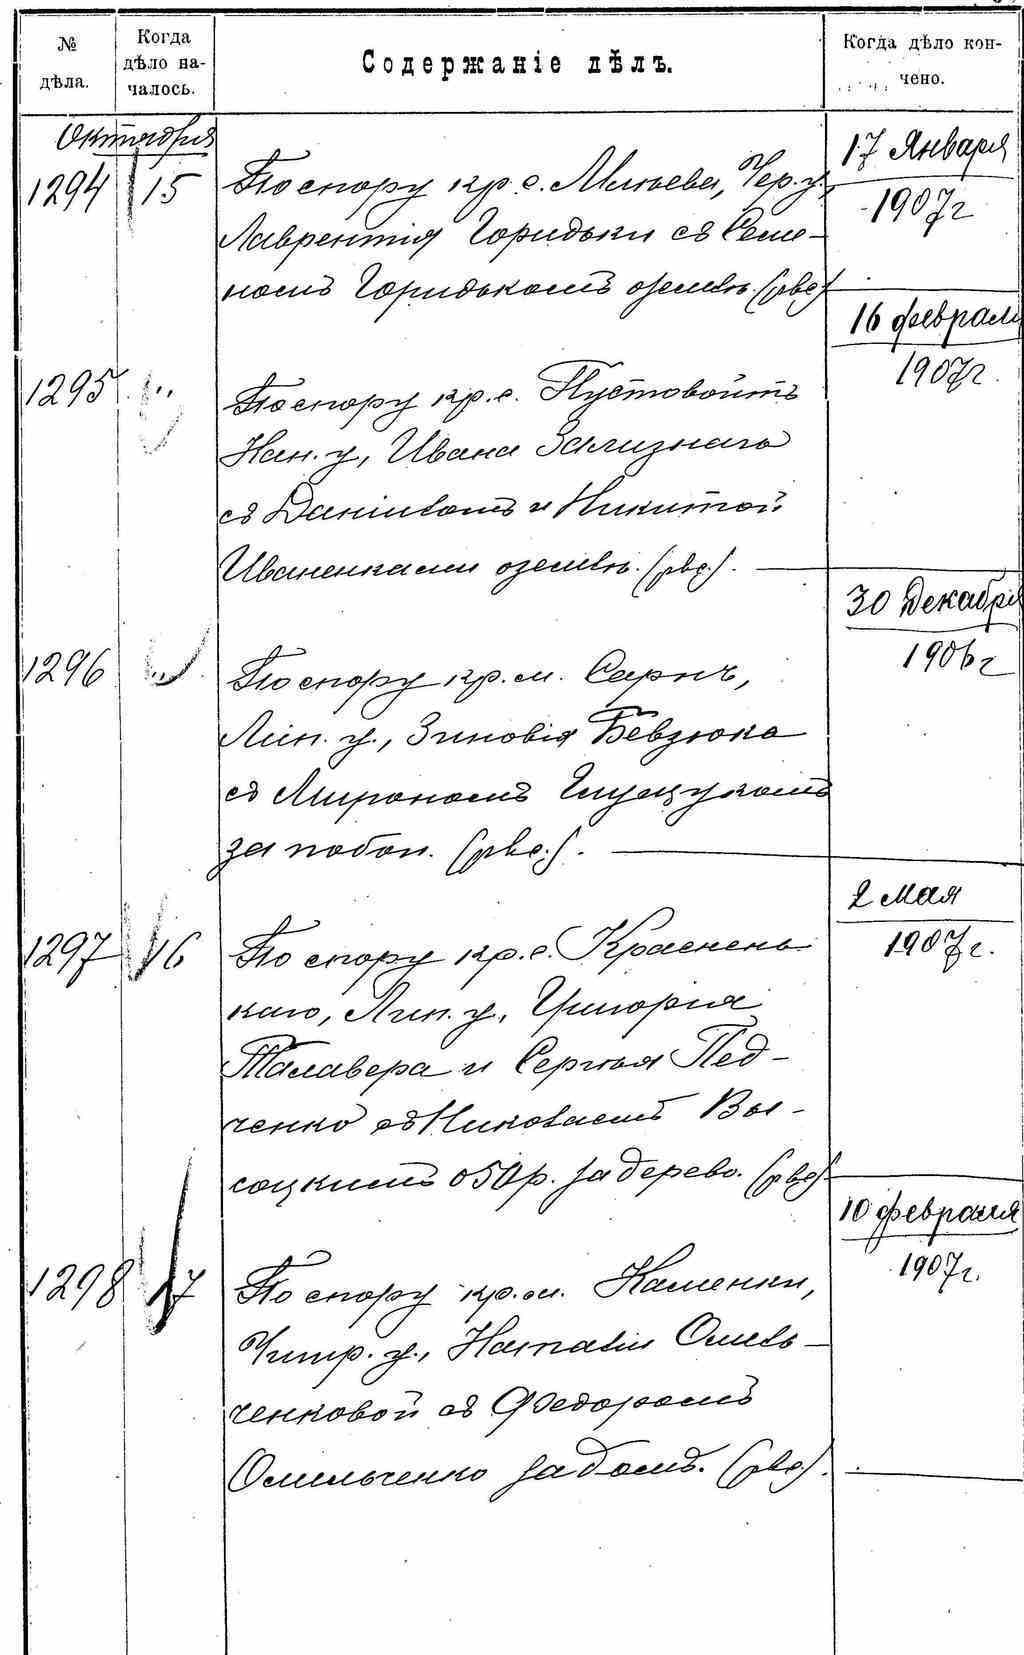 № дѣла.
Когда дѣло на-
чалось.
Содержаніе дѣлъ.
Когда дѣло кон-
чено.
Октября
1294 15 По спору кр. с. Млѣева, Чер. у.,
Лаврентія Горидьки съ Семе-
номъ Горидькомъ о землѣ.
17 Января
1907 г
1295 " По спору кр. с. Пустовойтъ
Кан. у., Ивана Зализнаго
съ Даніиломъ и Никитой
Иваненками о землѣ.
16 февраля
1907 г.
1296 " По спору кр. м. Сарнъ,
Лип. у., Зиновія Бевзюка
съ Мирономъ
за побои.
30 Декабря
1906 г
1297 16 По спору кр. с. Красень-
каго, Лип. у., Григорія
Талавера и Сергѣя Пед-
ченко съ Николаемъ Вы-
соцкимъ о 50 р. за дерево.
2 Мая
1907 г.
1298 17 По спору кр. м. Каменки,
Чигир. у., Наталіи Омель-
ченковой съ Федоромъ
Омельченко за домъ.
10 февраля
1907 г.